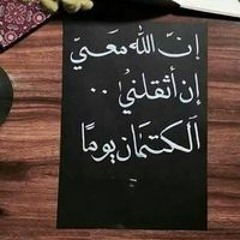 إنّ الله معيّ
إن أثقلنيُ ..
ألكتمان يومًا